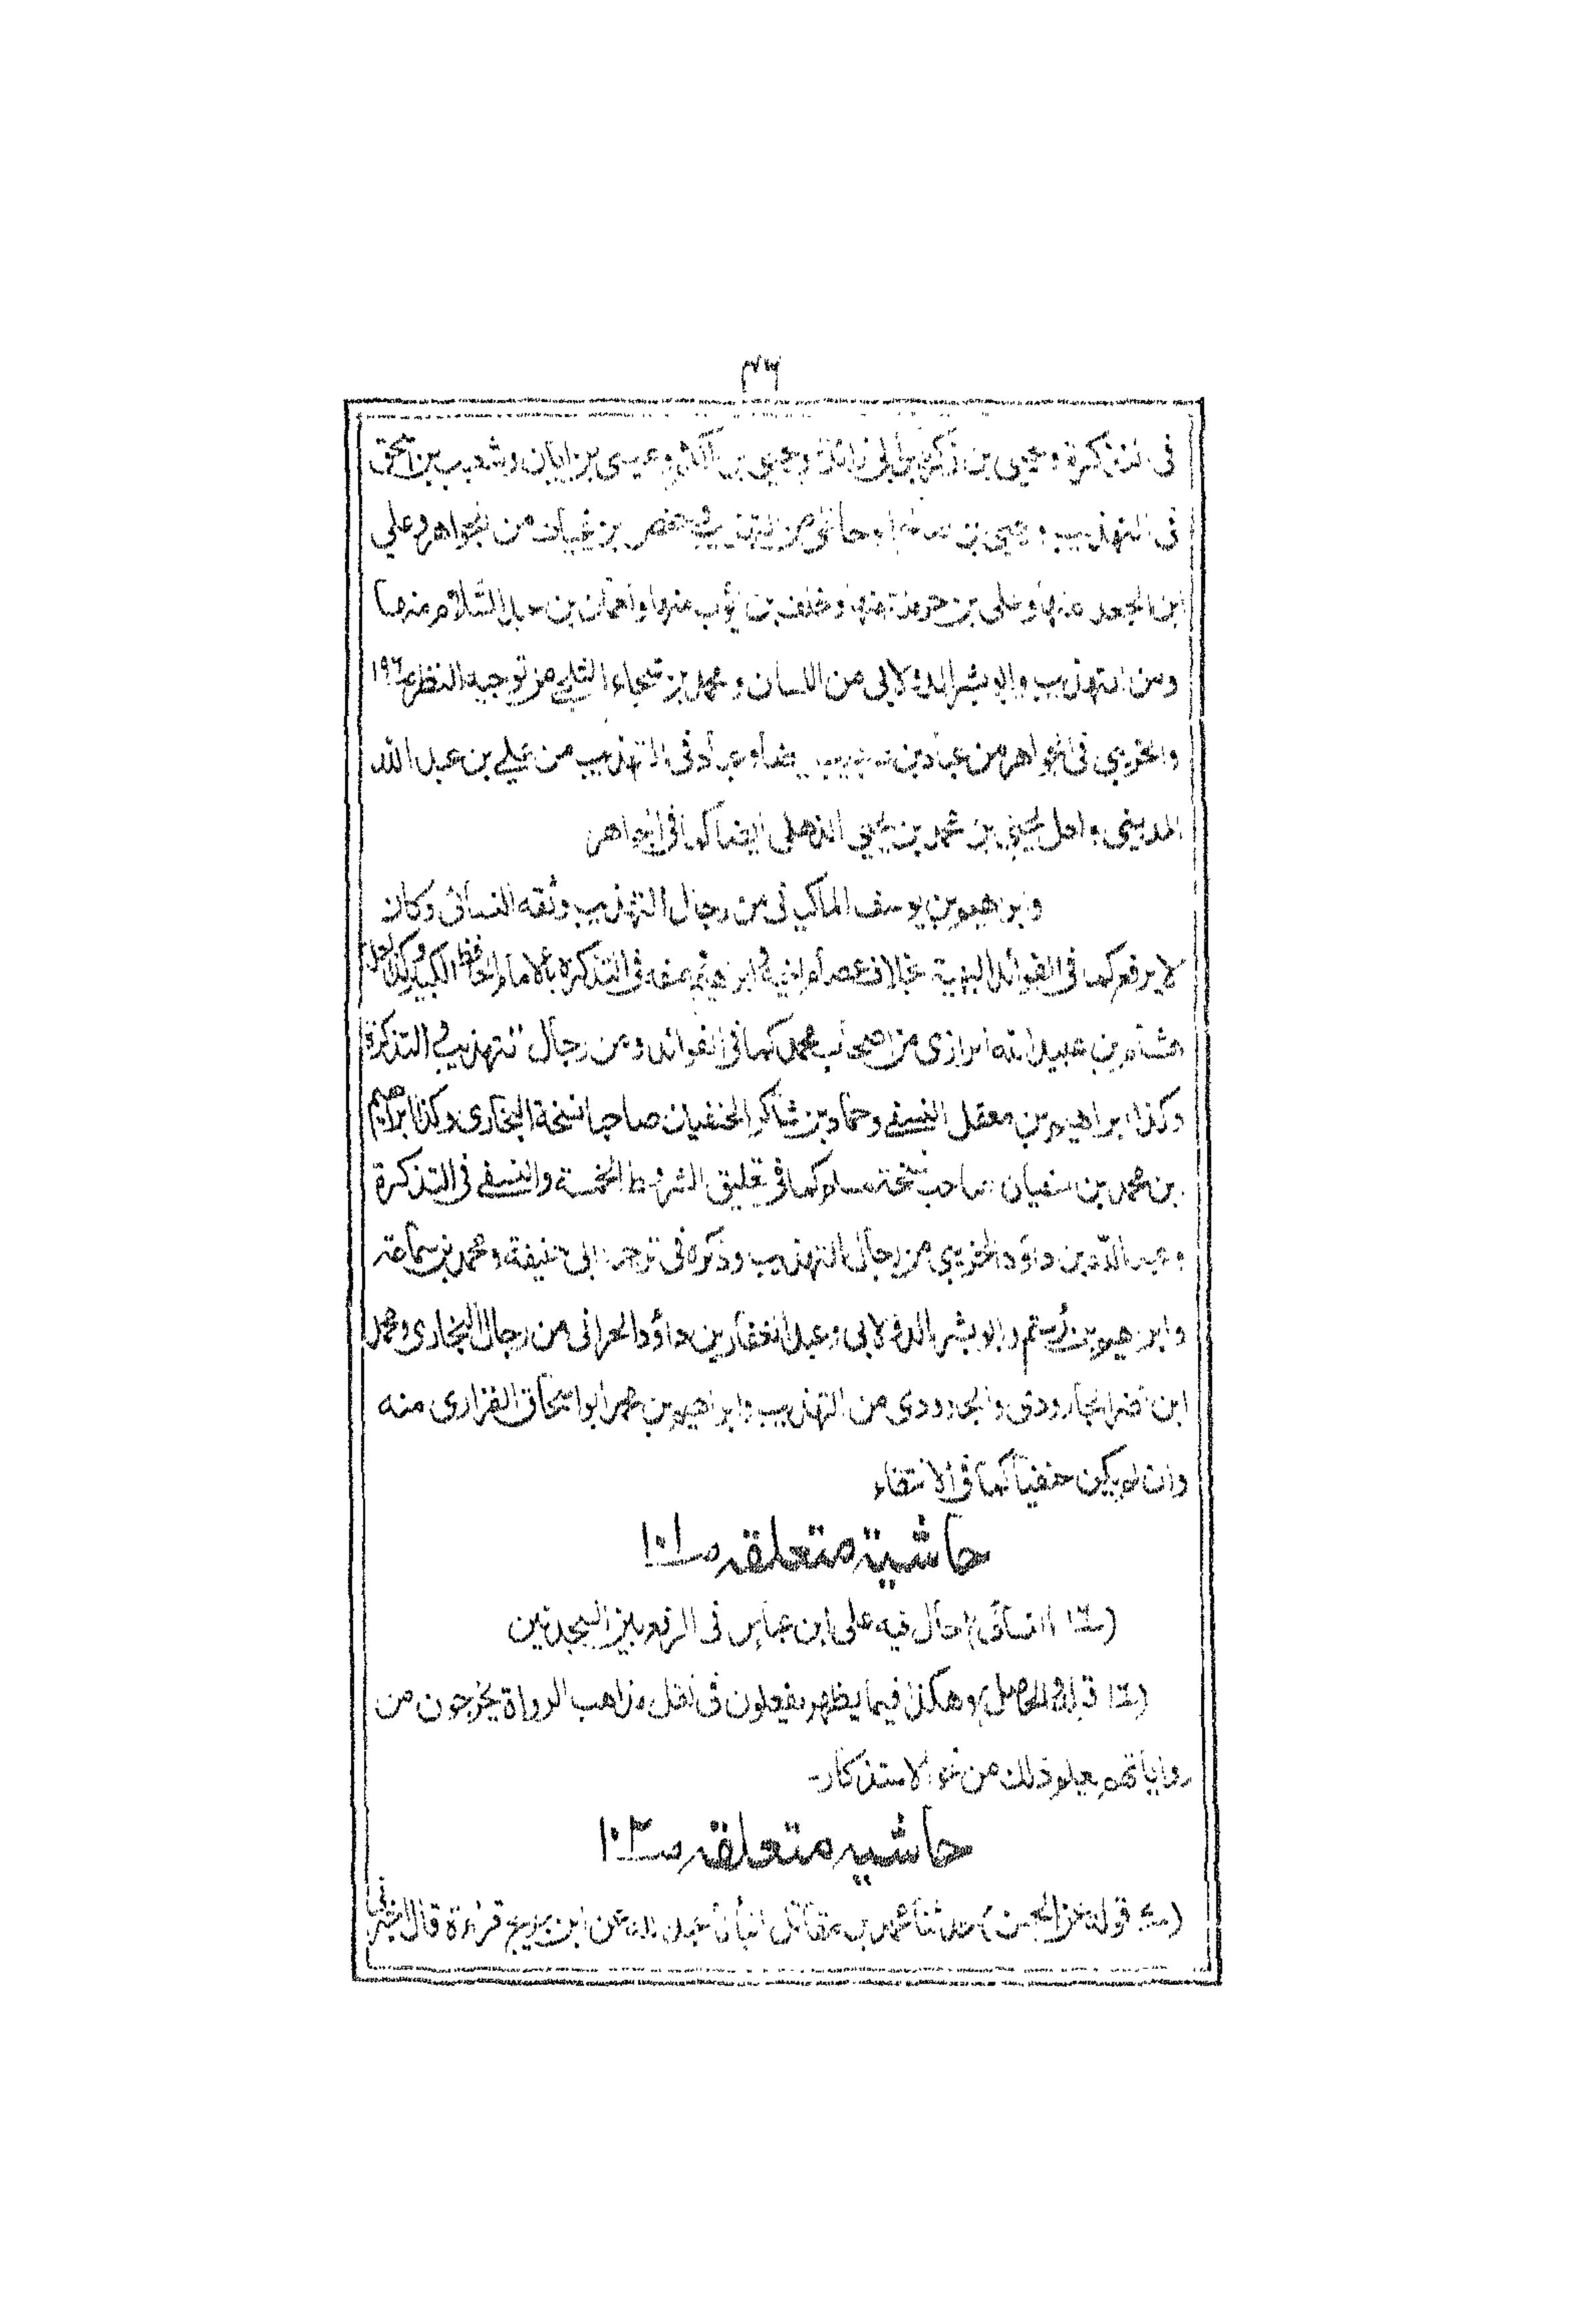 ٣٦
فى التذكرة ويحيى بن زكريا بن أبى زائدة ويحيى بن وعيسى بن ابان وشعيب بن اسحق
فى التهذيب ويحيى بن من التهذيب وحفص بن غياث من الجواهر وعلي
ابن الجعد منها وعلى بن منها وخلف بن ايوب منها بن عبد السلام منها
ومن التهذيب وابو بشر الدولابى من اللسان ومحمد بن شجاع الثلجي من توجيه النظر
والخريبي فى الجواهر من عباد بن ايضا وعباد فى التهذيب من علي بن عبد الله
المدينى ولعل يحيى بن محمد بن يحيى الذهلى ايضا كما فى الجواهر
وابراهيم بن يوسف الماكيانى من رجال التهذيب وثقه النسائى وكان
لا يرفع كما فى الفوائد البهية بخلاف عصام اخيه فى التذكرة بالامام الحافظ الكبير وكذا لعل
هشام بن عبيد الله الرازى من اصحاب محمد كما فى الفوائد ومن رجال التهذيب التذكرة
وكذا ابراهيم بن معقل النسفي وحماد بن شاكر الحنفيان صاحبا نسخة البخارى وكذا ابراهيم
بن محمد بن سفيان صاحب نسخة مسلم كما فى تعليق الشروط الخمسة والنسفي فى التذكرة
وعبد الله بن داؤد الخريبي من رجال التهذيب وذكره فى ترجمة ابى حنيفة ومحمد بن سماعة
وابراهيم بن رستم وابو بشر الدولابى وعبد الغفار بن داؤد الحرانى من رجال البخارى ومحمد
ابن النضر الجارودى والجارودى من التهذيب وابراهيم بن محمد ابو اسحاق الفزارى منه
وان لم يكن حنفيا كما فى الانتقاء
حاشية متعلقه صـ١٠١
النسائى) احال فيه على ابن عباس فى الرفع بين السجدتين
وهكذا فيما يظهر يفعلون فى نقل مذاهب الرواة يخرجون من
رواياتهم يعلم ذلك من نحو الاستذكار-
حاشيه متعلقه صـ
قوله عن الحسن) حدثنا محمد بن مقاتل انبأنا عبد الله عن ابن جريج قراءة قال اخبرنى